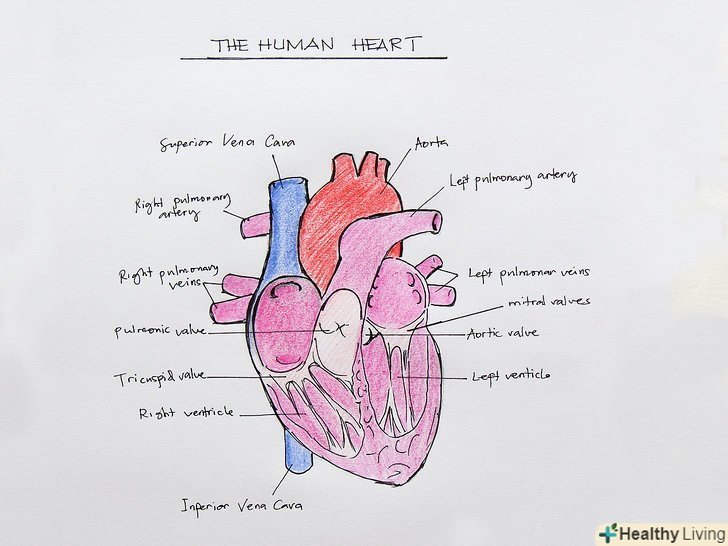 THE HUMAN HEART
Superior Vena Cava
Aorta
Left pulmonary artery
Right pulmonary
artery
Right pulmonary
veins
Left pulmonar veins
mitral valves
pulmonic valve
Aortic valve
Tricuspid valve
Left ventricle
Right ventricle
Inferior Vena Cava
Healthy Living